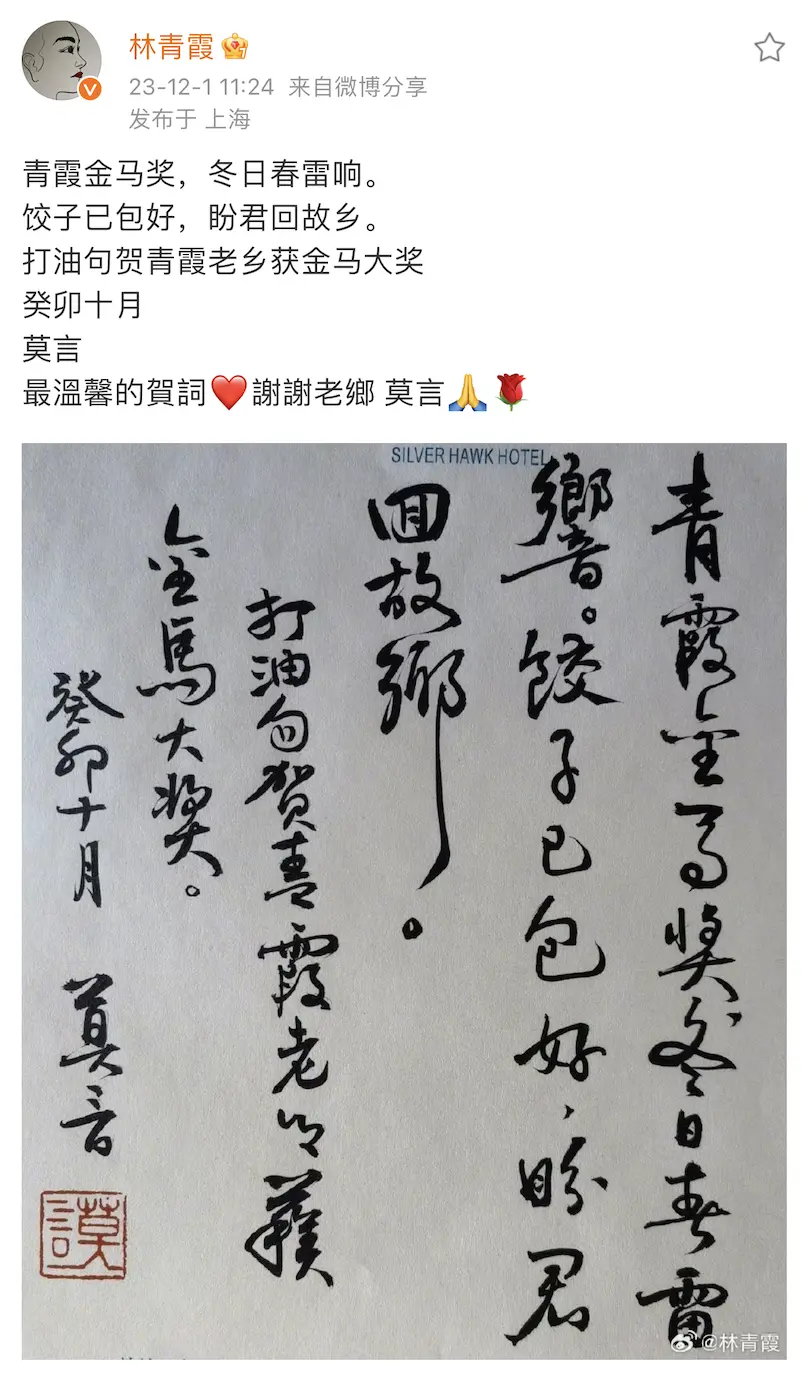 林青霞
23-12-1 11:24 来自微博分享
发布于 上海
青霞金马奖，冬日春雷响。
饺子已包好，盼君回故乡。
打油句贺青霞老乡获金马大奖
癸卯十月
莫言
最溫馨的賀詞❤️謝謝老鄉 莫言🙏🌹
SILVER HAWK HOTEL
青霞金马奬冬日春雷
響。餃子已包好，盼君
囬故鄉。
打油句賀青霞老乡獲
金馬大奬。
癸卯十月 莫言
謨
@林青霞